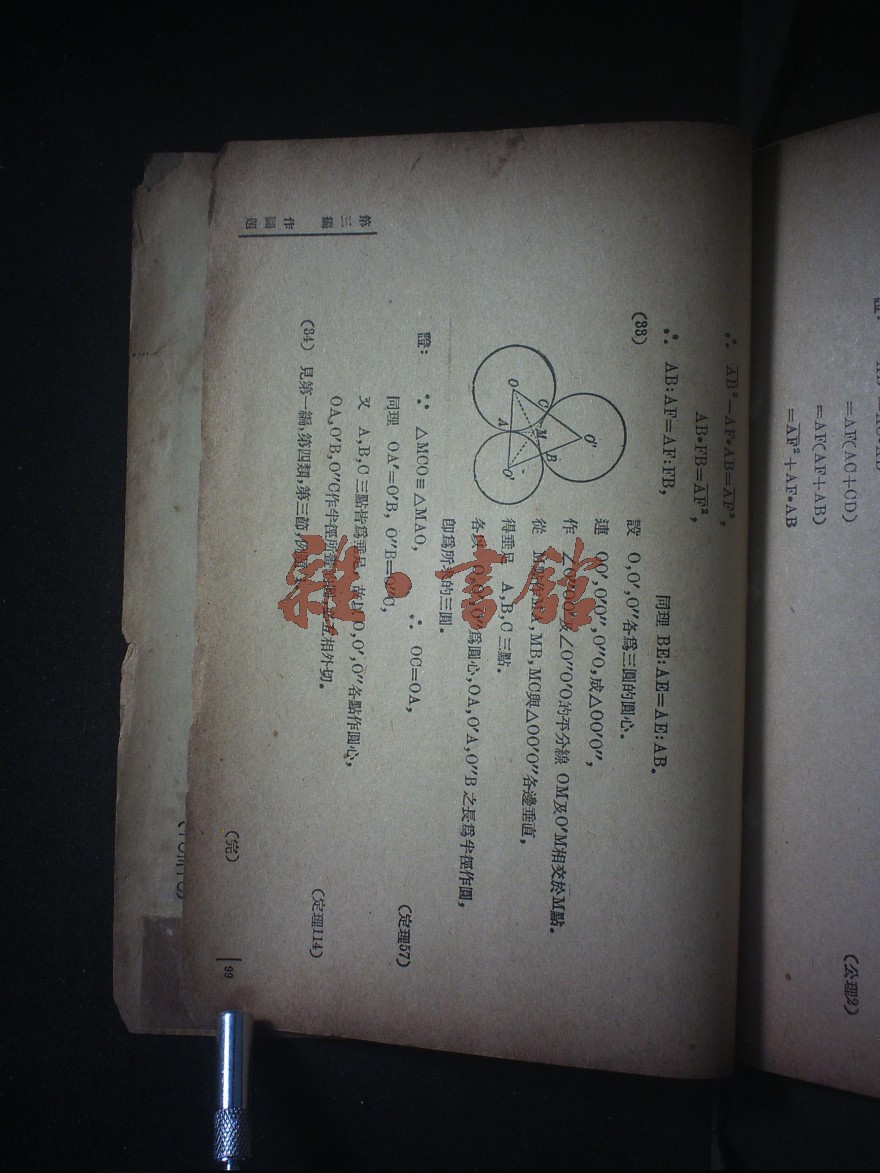 =AF(AC+CD)
=AF(AF+AB)
=AF²+AF•AB (公理2)
∴ AB²−AF•AB=AF²,
AB•FB=AF²,
∴ AB:AF=AF:FB, 同理 BE:AE=AE:AB.
(33) 設 O,O′,O″各爲三圓的圓心.
連 OO′,O′O″,O″O,成△OO′O″,
作 及∠O″O′O的平分線 OM及O′M相交於M點.
從 MA,MB,MC與△OO′O″各邊垂直,
得垂足 A,B,C三點.
各以 爲圓心,OA,O′A,O″B之長爲半徑作圓,
卽爲所 的三圓.
O C O″ M B A O′
證: ∵ △MCO≡△MAO, ∴ OC=OA, (定理57)
同理 OA′=O′B, O″B=O″C,
又 A,B,C三點皆爲垂足,故以O,O′,O″各點作圓心,
OA,O′B,O″C作半徑所 互相外切. (定理114)
(34) 見第一編,第四類,第三節,例
(完)
第三編 作圖題
99